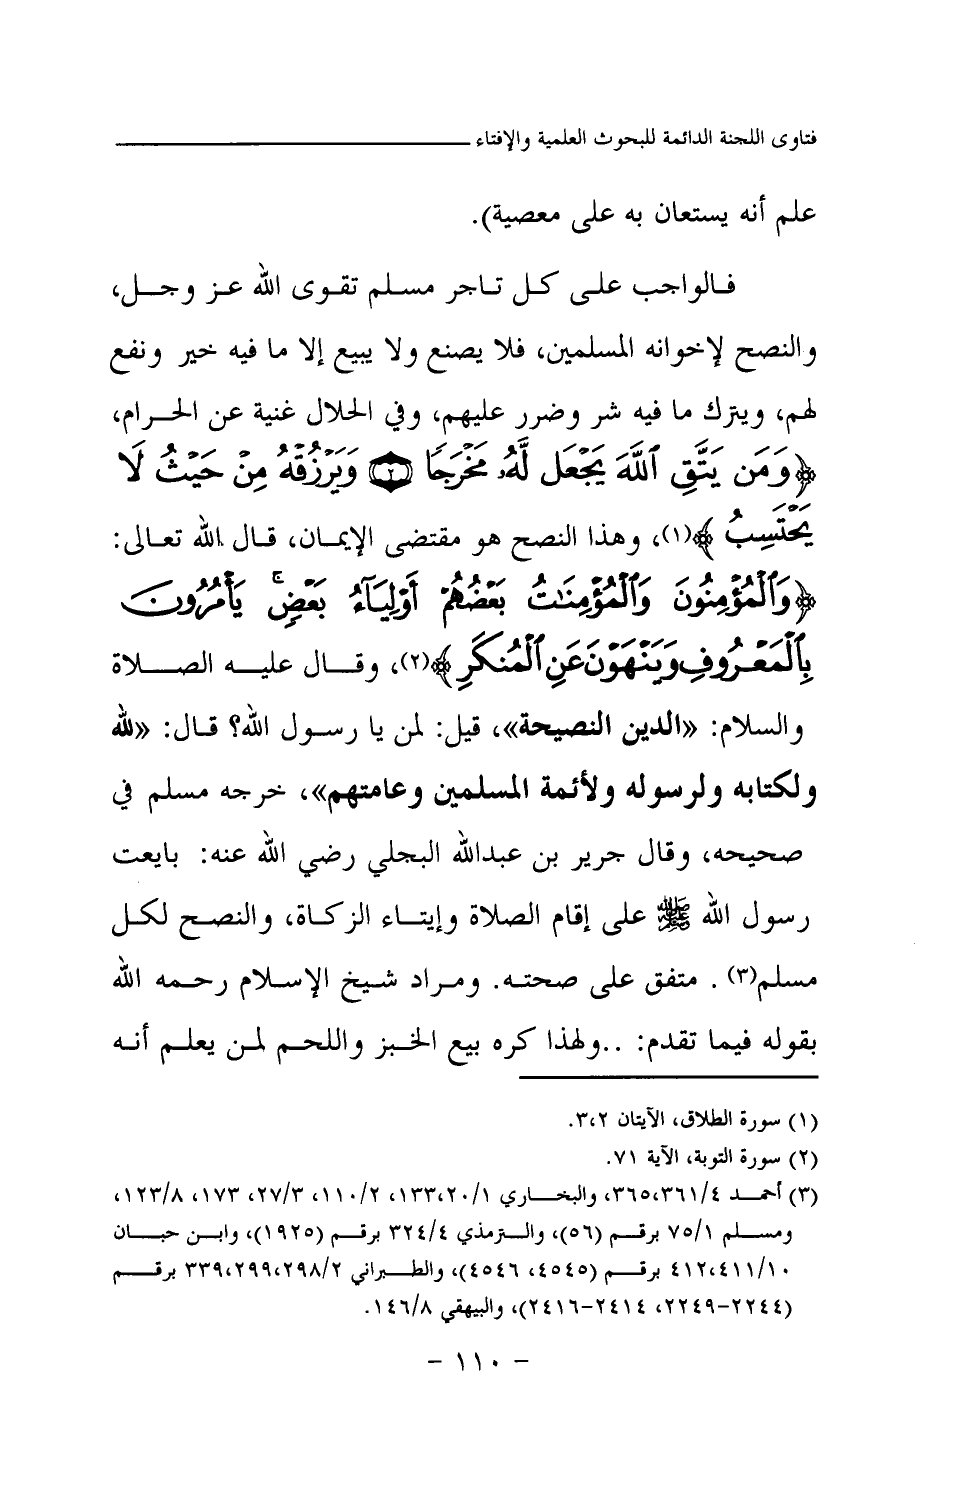 فتاوى اللجنة الدائمة للبحوث العلمية والإفتاء
علم أنه يستعان به على معصية).
فالواجب على كل تاجر مسلم تقوى الله عز وجل،
والنصح لإخوانه المسلمين، فلا يصنع ولا يبيع إلا ما فيه خير ونفع
لهم، ويترك ما فيه شر وضرر عليهم، وفي الحلال غنية عن الحرام،
﴿وَمَن يَتَّقِ ٱللَّهَ يَجْعَل لَّهُۥ مَخْرَجًا ۝٢ وَيَرْزُقْهُ مِنْ حَيْثُ لَا
يَحْتَسِبُ﴾(١)، وهذا النصح هو مقتضى الإيمان، قال الله تعالى:
﴿وَٱلْمُؤْمِنُونَ وَٱلْمُؤْمِنَٰتُ بَعْضُهُمْ أَوْلِيَآءُ بَعْضٍ ۚ يَأْمُرُونَ
بِٱلْمَعْرُوفِ وَيَنْهَوْنَ عَنِ ٱلْمُنكَرِ﴾(٢)، وقال عليه الصلاة
والسلام: «الدين النصيحة»، قيل: لمن يا رسول الله؟ قال: «لله
ولكتابه ولرسوله ولأئمة المسلمين وعامتهم»، خرجه مسلم في
صحيحه، وقال جرير بن عبدالله البجلي رضي الله عنه: بايعت
رسول الله ﷺ على إقام الصلاة وإيتاء الزكاة، والنصح لكل
مسلم(٣). متفق على صحته. ومراد شيخ الإسلام رحمه الله
بقوله فيما تقدم: ..ولهذا كره بيع الخبز واللحم لمن يعلم أنه
(١) سورة الطلاق، الآيتان ٣،٢.
(٢) سورة التوبة، الآية ٧١.
(٣) أحمد ٣٦٥،٣٦١/٤، والبخاري ١٣٣،٢٠/١، ١١٠/٢، ٢٧/٣، ١٧٣، ١٢٣/٨،
ومسلم ٧٥/١ برقم (٥٦)، والترمذي ٣٢٤/٤ برقم (١٩٢٥)، وابن حبان
٤١٢،٤١١/١٠ برقم (٤٥٤٥، ٤٥٤٦)، والطبراني ٣٣٩،٢٩٩،٢٩٨/٢ برقم
(٢٢٤٤-٢٢٤٩، ٢٤١٤-٢٤١٦)، والبيهقي ١٤٦/٨.
- ١١٠ -